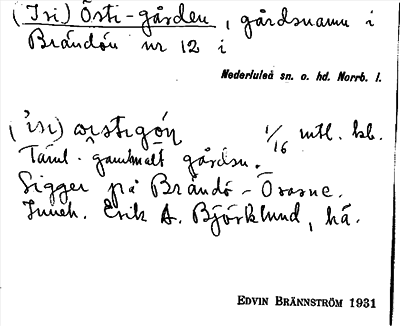 (Isi) Östi-gården, gårdsnamn i
Brändön nr 12 i
Nederluleå sn. o. hd. Norrb. l.
('isi) östigón 1/16 mtl. kb.
Täml. gammalt gårdsn.
Ligger på Brändö-Ösasne.
Inneh. Erik A. Björklund, hä.
EDVIN BRÄNNSTRÖM 1931